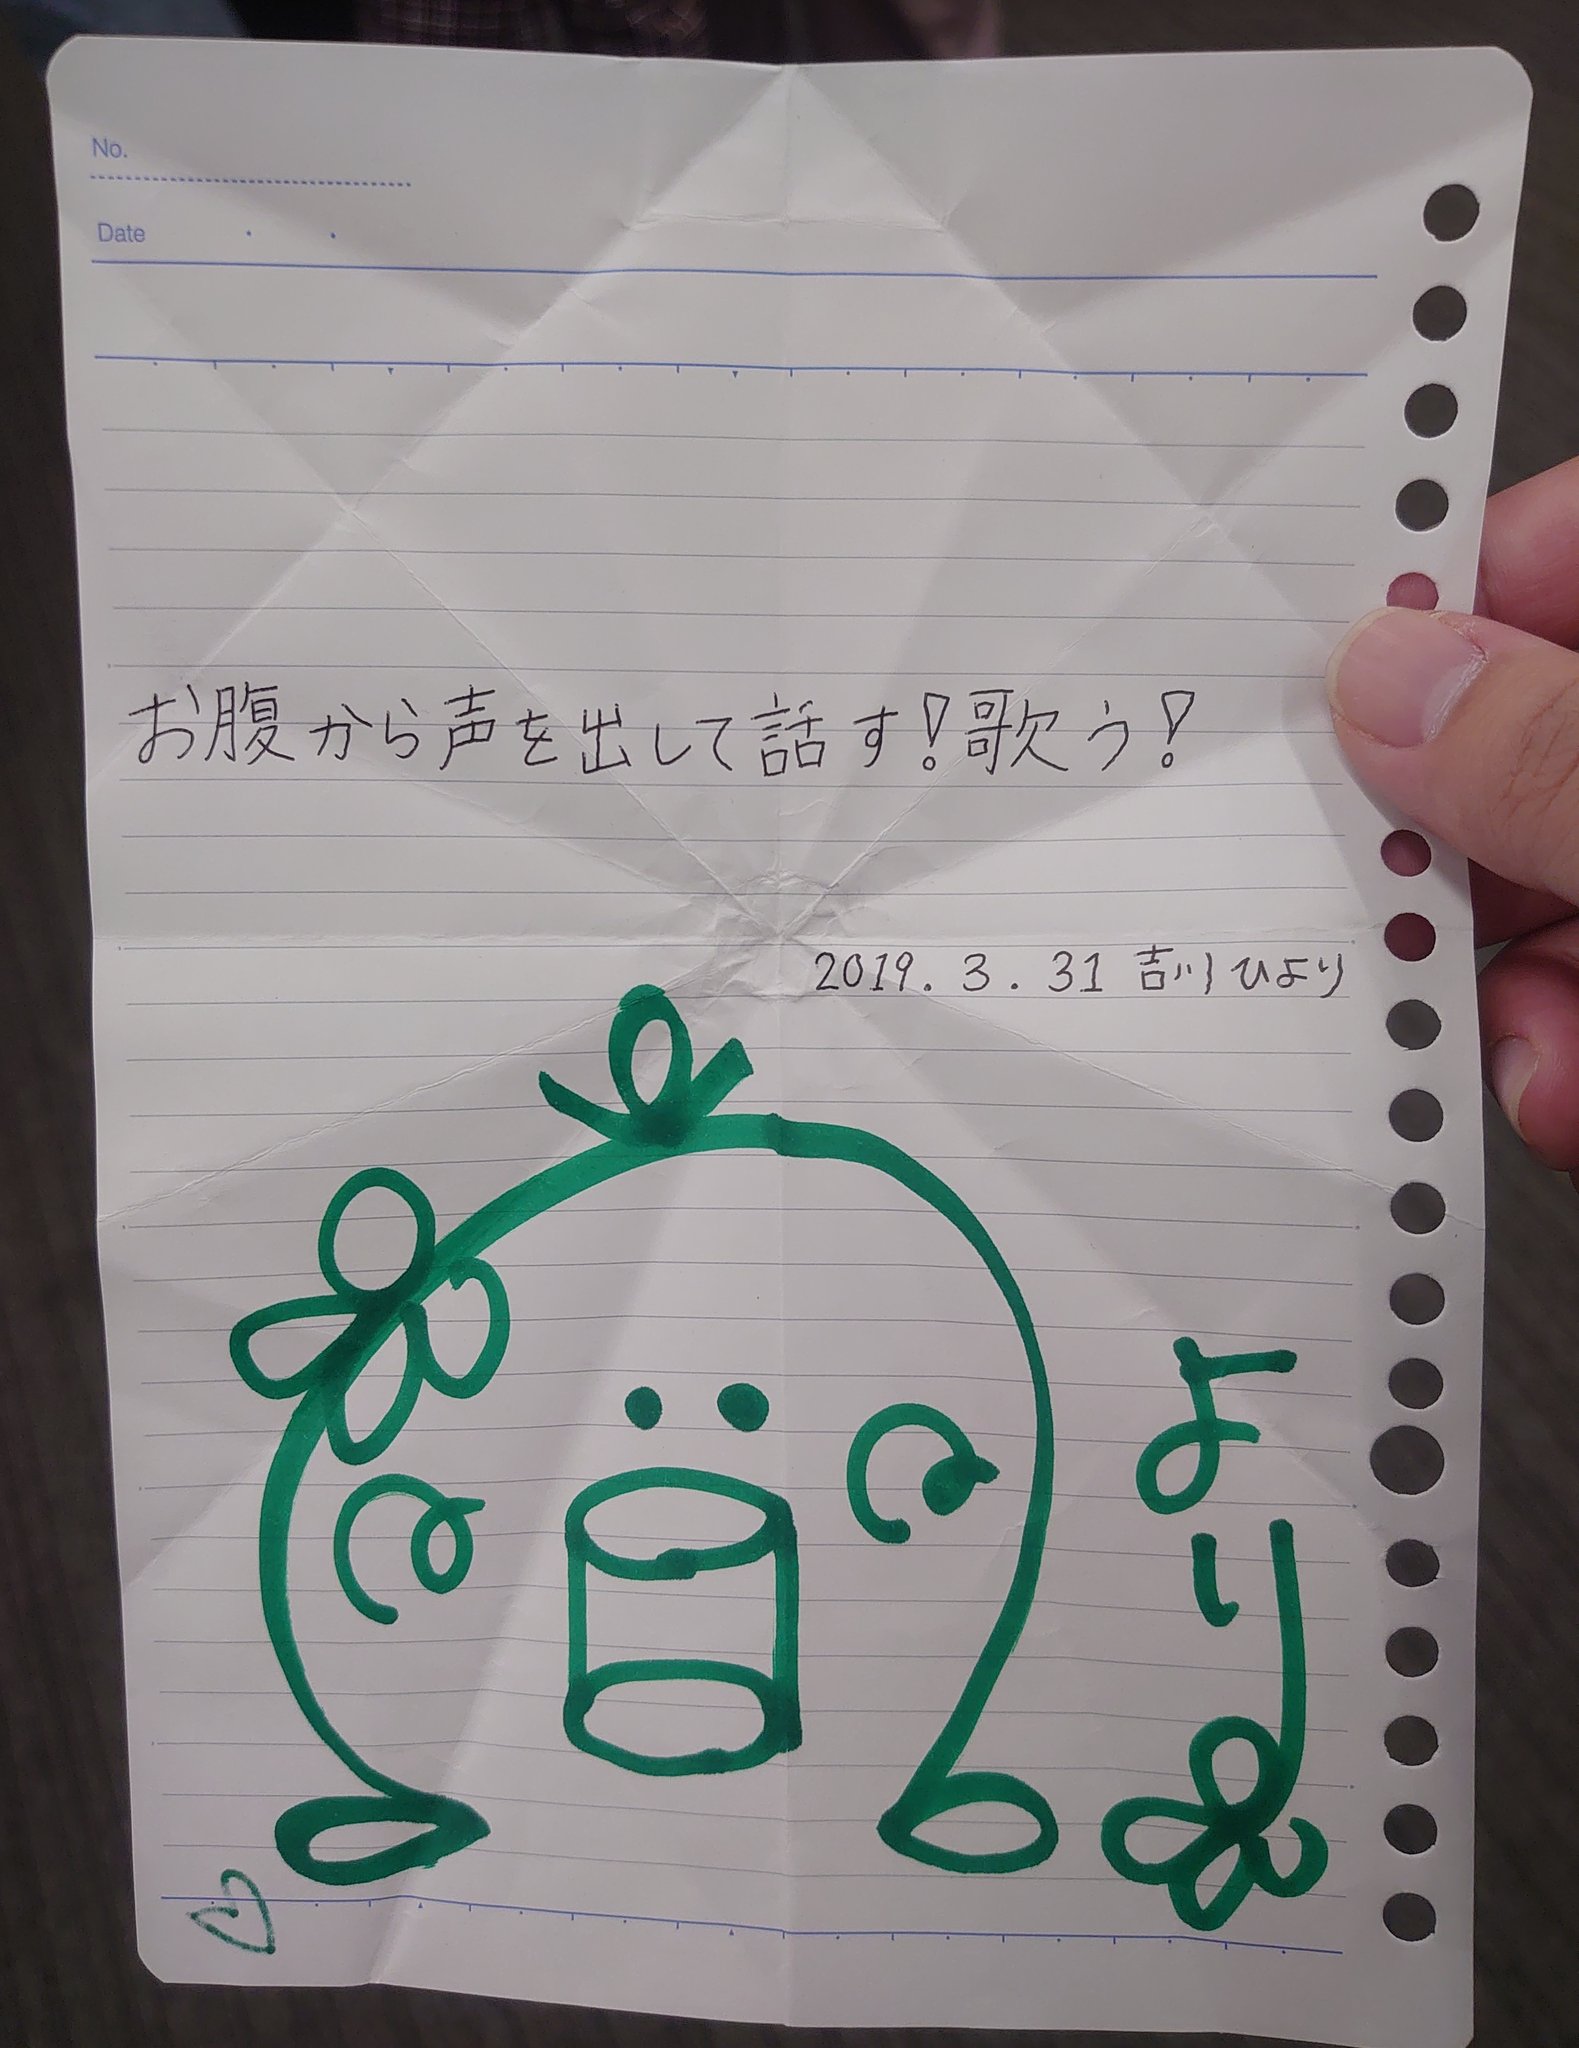 No.
Date
お腹から声を出して話す！歌う！
2019.3.31 吉川ひより
より